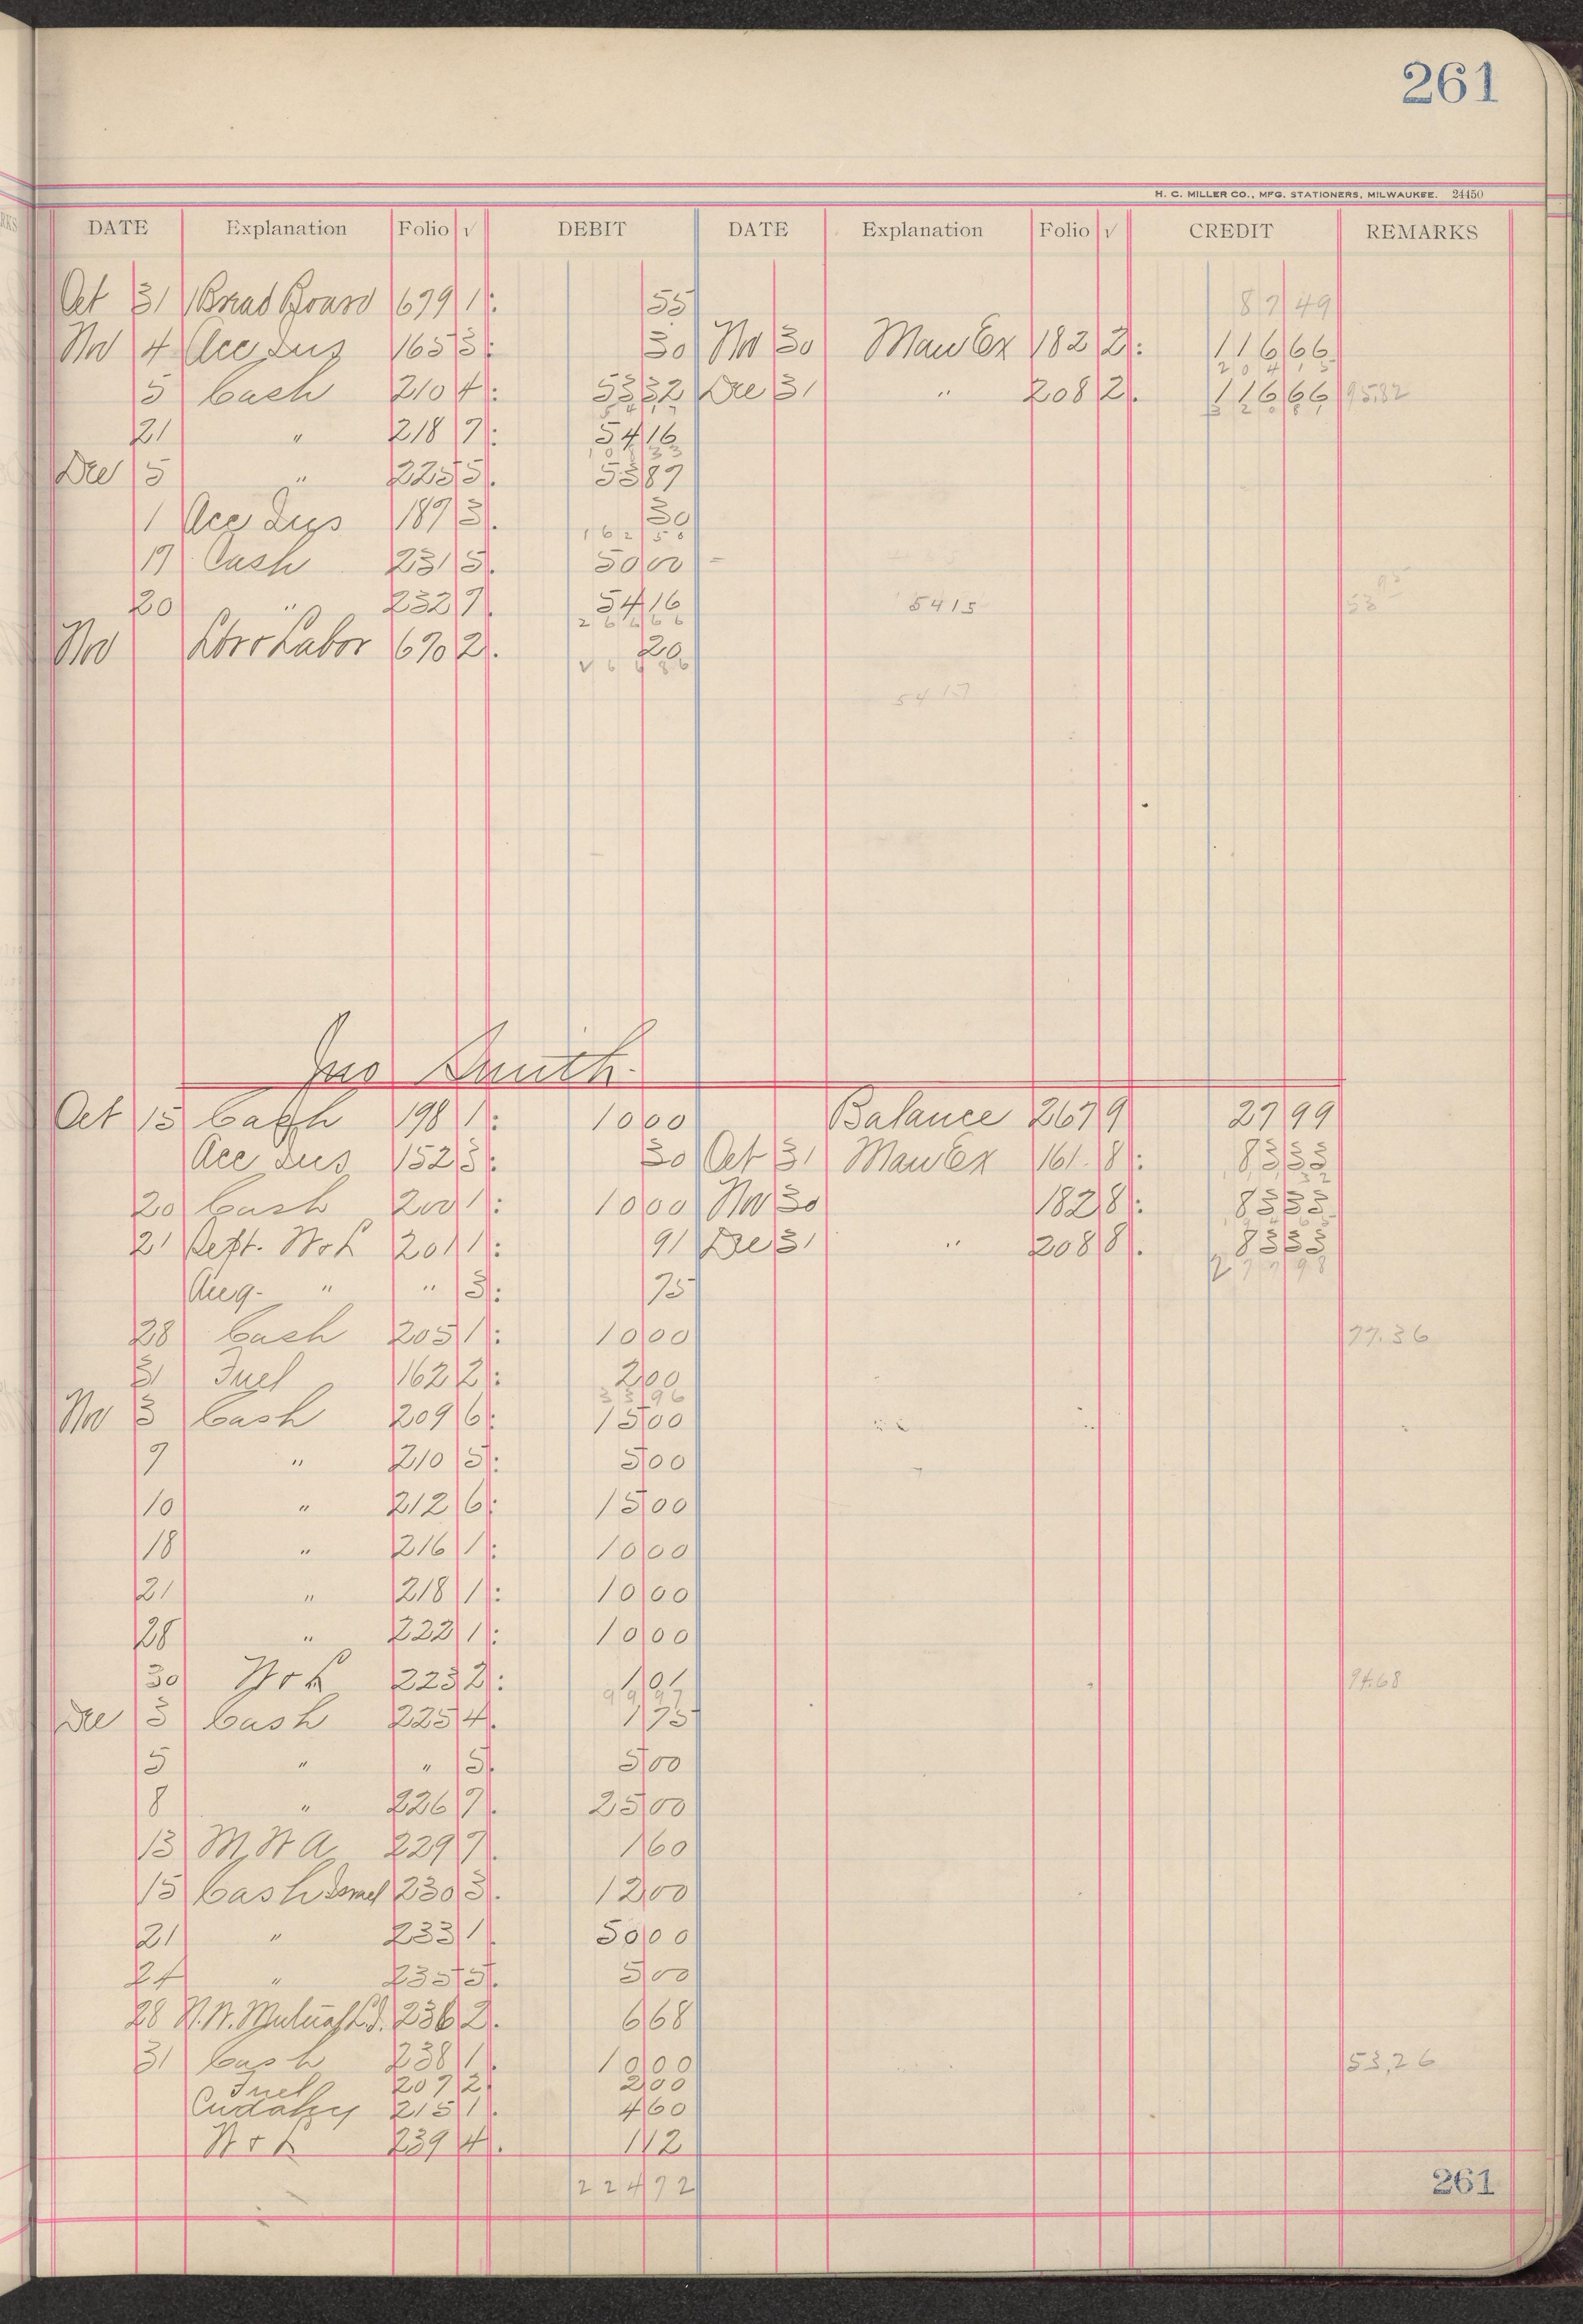 261
H. C. MILLER CO., MFG. STATIONERS, MILWAUKEE. 24450
DATE Explanation Folio √ DEBIT DATE Explanation Folio √ CREDIT REMARKS
Oct 31 Bread Board 679 1 55 87 49
Nov 4 Acc Ins 165 3 30 Nov 30 Man Ex 182 2 116 66
204 15
5 Cash 210 4 53 32 Dec 31 " 208 2 116 66 95.82
54 17 320 81
21 " 218 7 54 16
108 33
Dec 5 " 225 5 53 87
1 Acc Ins 187 3 30
162 50
17 Cash 231 5 50 00
20 " 232 7 54 16 5415 53
266 66
Nov Labor 670 2 20
266 86
5417
Jno Smith
Oct 15 Cash 198 1 10 00 Balance 267 9 27 99
Acc Ins 152 3 30 Oct 31 Man Ex 161 8 83 33
20 Cash 200 1 10 00 Nov 30 182 8 83 33
21 Sept. W & L 201 1 91 Dec 31 " 208 8 83 33
277 98
Aug. " " 3 75
28 Cash 205 1 10 00 77.36
31 Fuel 162 2 2 00
33 96
Nov 3 Cash 209 6 15 00
7 " 210 5 5 00
10 " 212 6 15 00
18 " 216 1 10 00
21 " 218 1 10 00
28 " 222 1 10 00
30 W & L 223 2 1 01 94.68
99 97
Dec 3 Cash 225 4 1 75
5 " " 5 5 00
8 " 226 7 25 00
13 M.W.A. 229 7 1 60
15 Cash 230 3 12 00
21 " 233 1 50 00
24 " 235 5 5 00
28 N.W. Mutual 236 2 6 68
31 Cash 238 1 10 00 53,26
Fuel 207 2 2 00
Cudahy 215 1 4 60
W & L 239 4 1 12
224 72
261